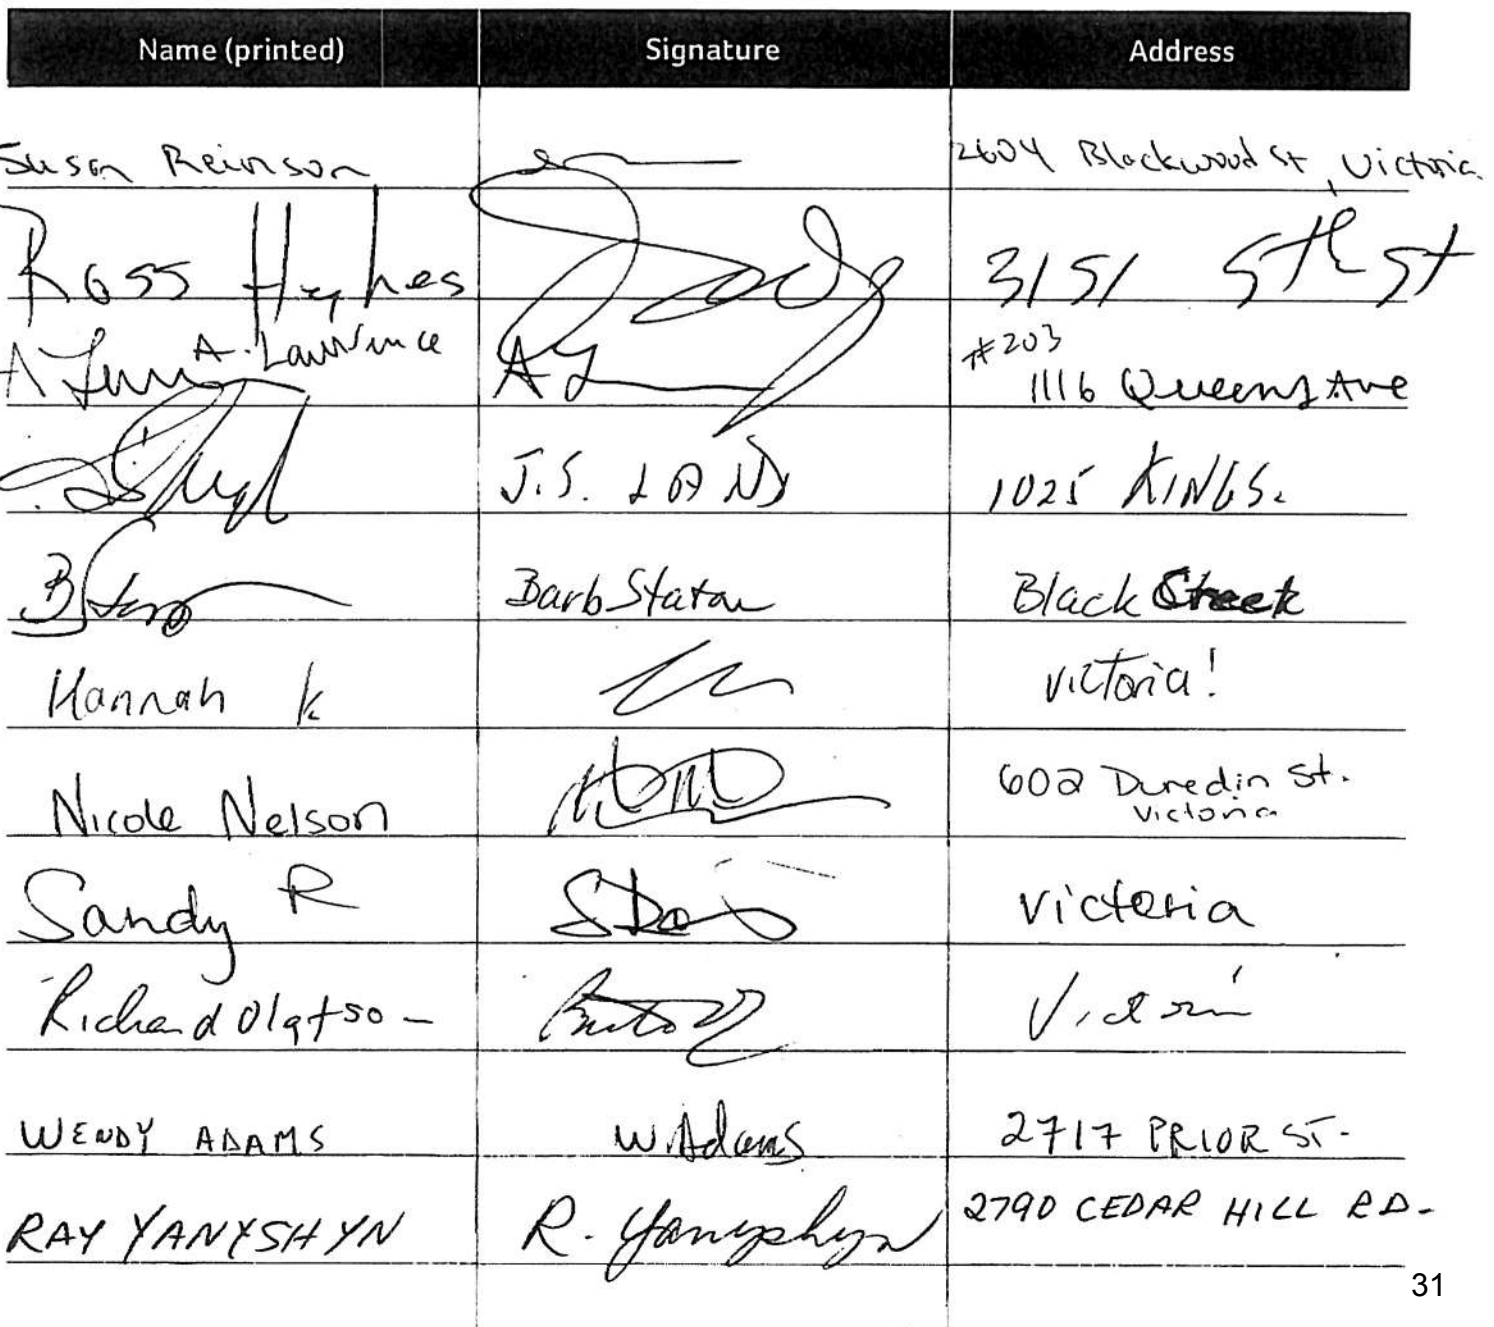 Name (printed) Signature Address
Susan Reinson 2604 Blackwood St, Victoria
Ross Hughes 3151 5th St
A. Lawrence #203
AL 1116 Queens Ave
J.S. LAND 1025 KINGS.
Barb Staton Black Street
Hannah K Victoria!
Nicole Nelson 602 Dunedin St.
Victoria
Sandy R Victoria
Richard Olafson Victoria
WENDY ADAMS W. Adams 2717 PRIOR ST.
RAY YANYSHYN R. Yanyshyn 2790 CEDAR HILL RD.
31